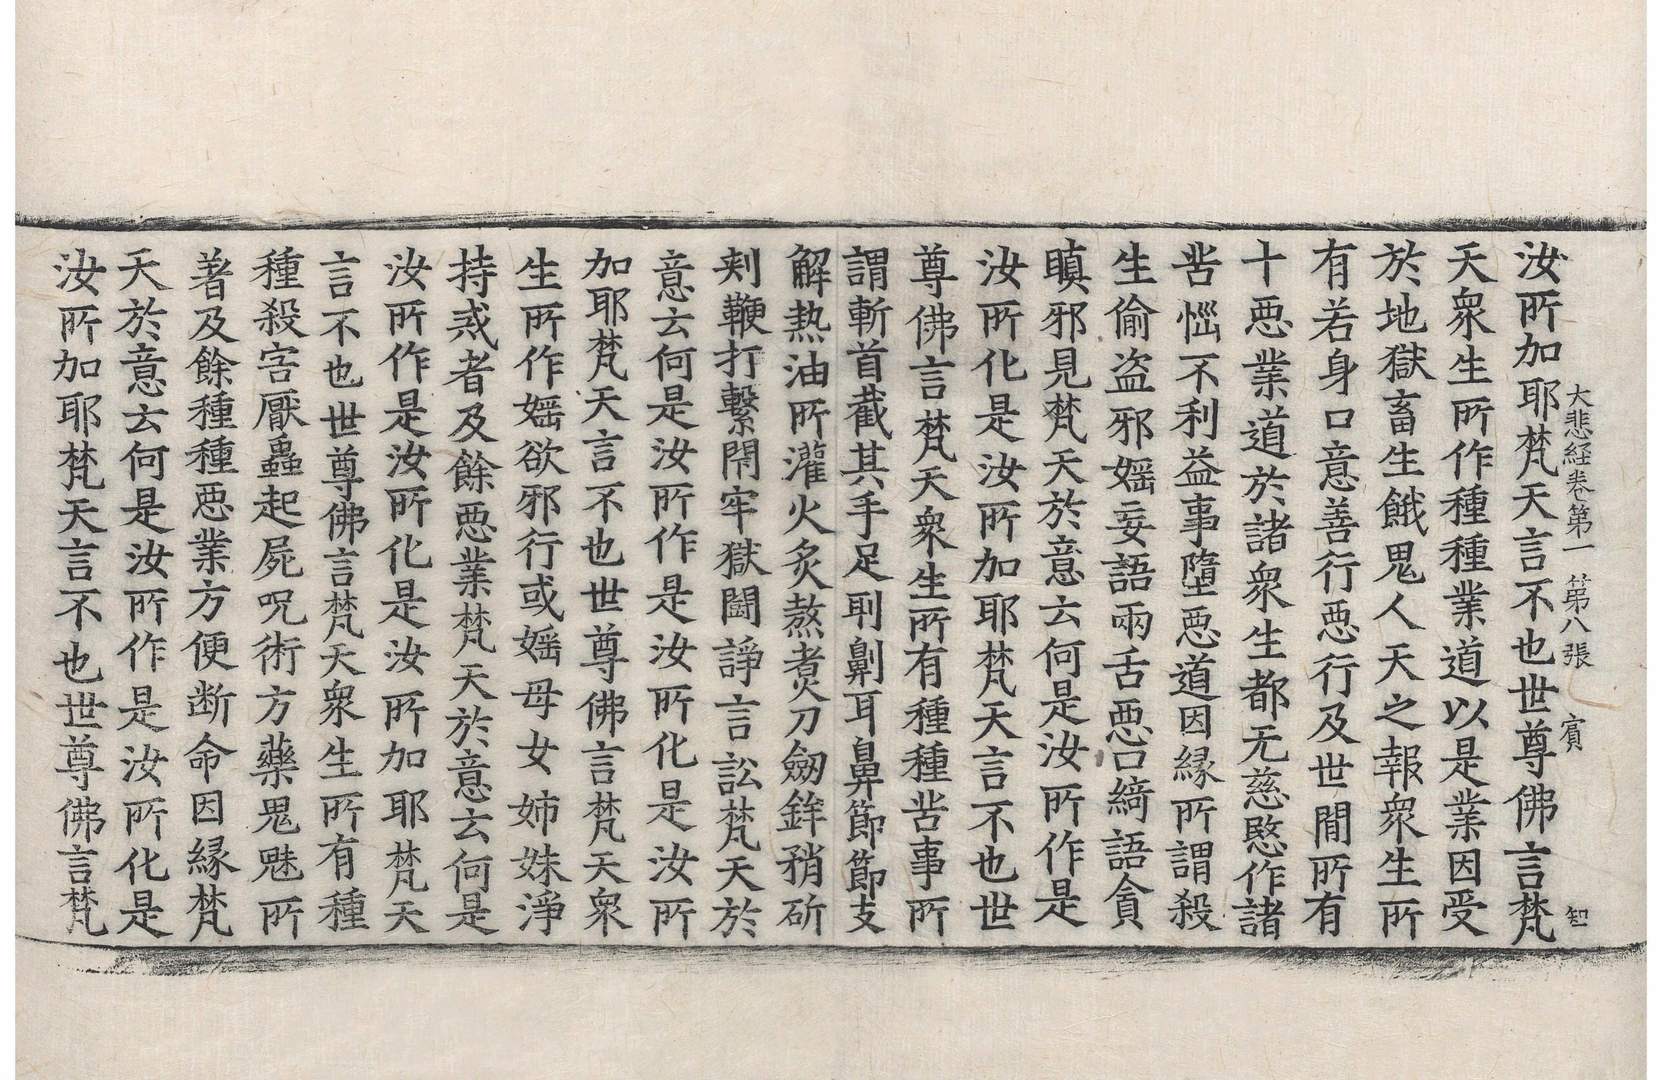 大悲経卷第一 第八張 賓 知
汝所加耶梵天言不也世尊佛言梵
天衆生所作種種業道以是業因受
於地獄畜生餓鬼人天之報衆生所
有若身口意善行惡行及世間所有
十惡業道於諸衆生都无慈愍作諸
苦惱不利益事墮惡道因縁所謂殺
生偷盗邪婬妄語兩舌惡口綺語貪
瞋邪見梵天於意云何是汝所作是
汝所化是汝所加耶梵天言不也世
尊佛言梵天衆生所有種種苦事所
謂斬首截其手足刵劓耳鼻節節支
解熱油所灌火炙熬煮刀劒鉾矟斫
刾鞭打繫閇牢獄鬪諍言訟梵天於
意云何是汝所作是汝所化是汝所
加耶梵天言不也世尊佛言梵天衆
生所作婬欲邪行或婬母女姉妹淨
持戒者及餘惡業梵天於意云何是
汝所作是汝所化是汝所加耶梵天
言不也世尊佛言梵天衆生所有種
種殺害厭蠱起屍呪術方藥鬼魅所
著及餘種種惡業方便断命因縁梵
天於意云何是汝所作是汝所化是
汝所加耶梵天言不也世尊佛言梵